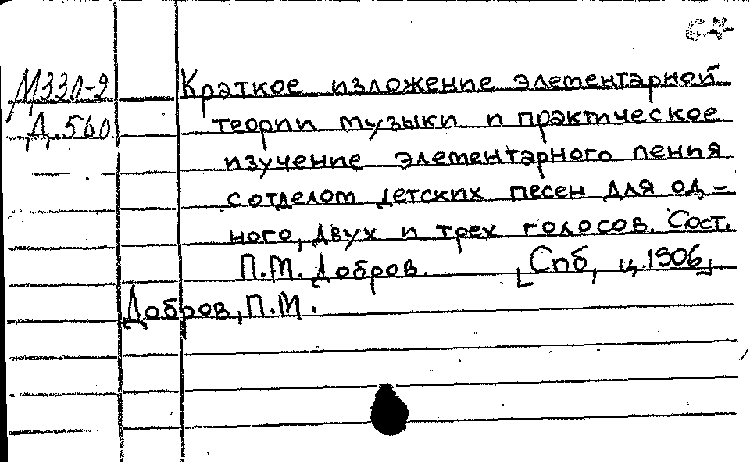 М330-2 Краткое изложение элементарной
Д.560 теории музыки и практическое
изучение элементарного пения
с отделом детских песен для од-
ного, двух и трех голосов. Сост.
П.М. Добров. [Спб, ц. 1906]
Добров, П.М.